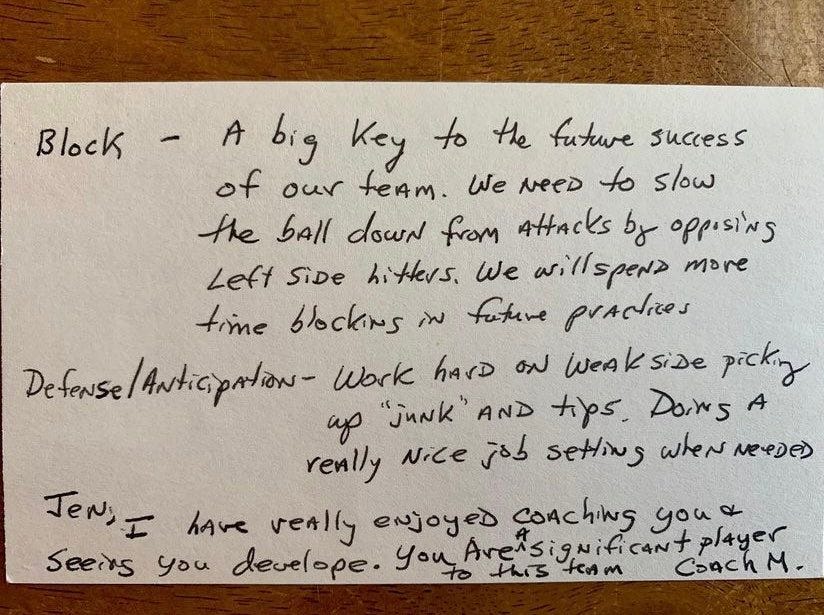 Block - A big key to the future success
of our team. We need to slow
the ball down from attacks by opposing
Left side hitters. We will spend more
time blocking in future practices
Defense/Anticipation - Work hard on weakside picking
up "junk" and tips. Doing a
really nice job setting when needed
Jen, I have really enjoyed coaching you &
seeing you develope. You are a significant player
to this team Coach M.